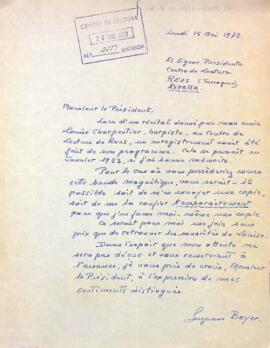 CENTRO DE LECTURA
ENTRADA
Lundi 15 Mai 1972
El Señor Presidente
Centro de Lectura
REUS (Tarragona)
ESPAÑA
Monsieur le Président,
Lors d'un récital donné par mon amie
Louise Charpentier, harpiste, au Centro de
Lectura de Reus, un enregistrement avait été
fait de son programme. Cela se passait en
Janvier 1953, si j'ai bonne mémoire.
Pour le cas où vous posséderiez encore
cette bande magnétique, vous serait-il
possible soit de m'en envoyer une copie,
soit de me la confier temporairement
pour que j'en fasse moi-même une copie.
Ce serait pour moi une joie sans
prix que de retrouver les sonorités de Louise.
Dans l'espoir que mon attente ne
sera pas déçue et vous remerciant à
l'avance, je vous prie de croire, Monsieur
le Président, à l'expression de mes
sentiments distingués.
Suzanne Boyer.